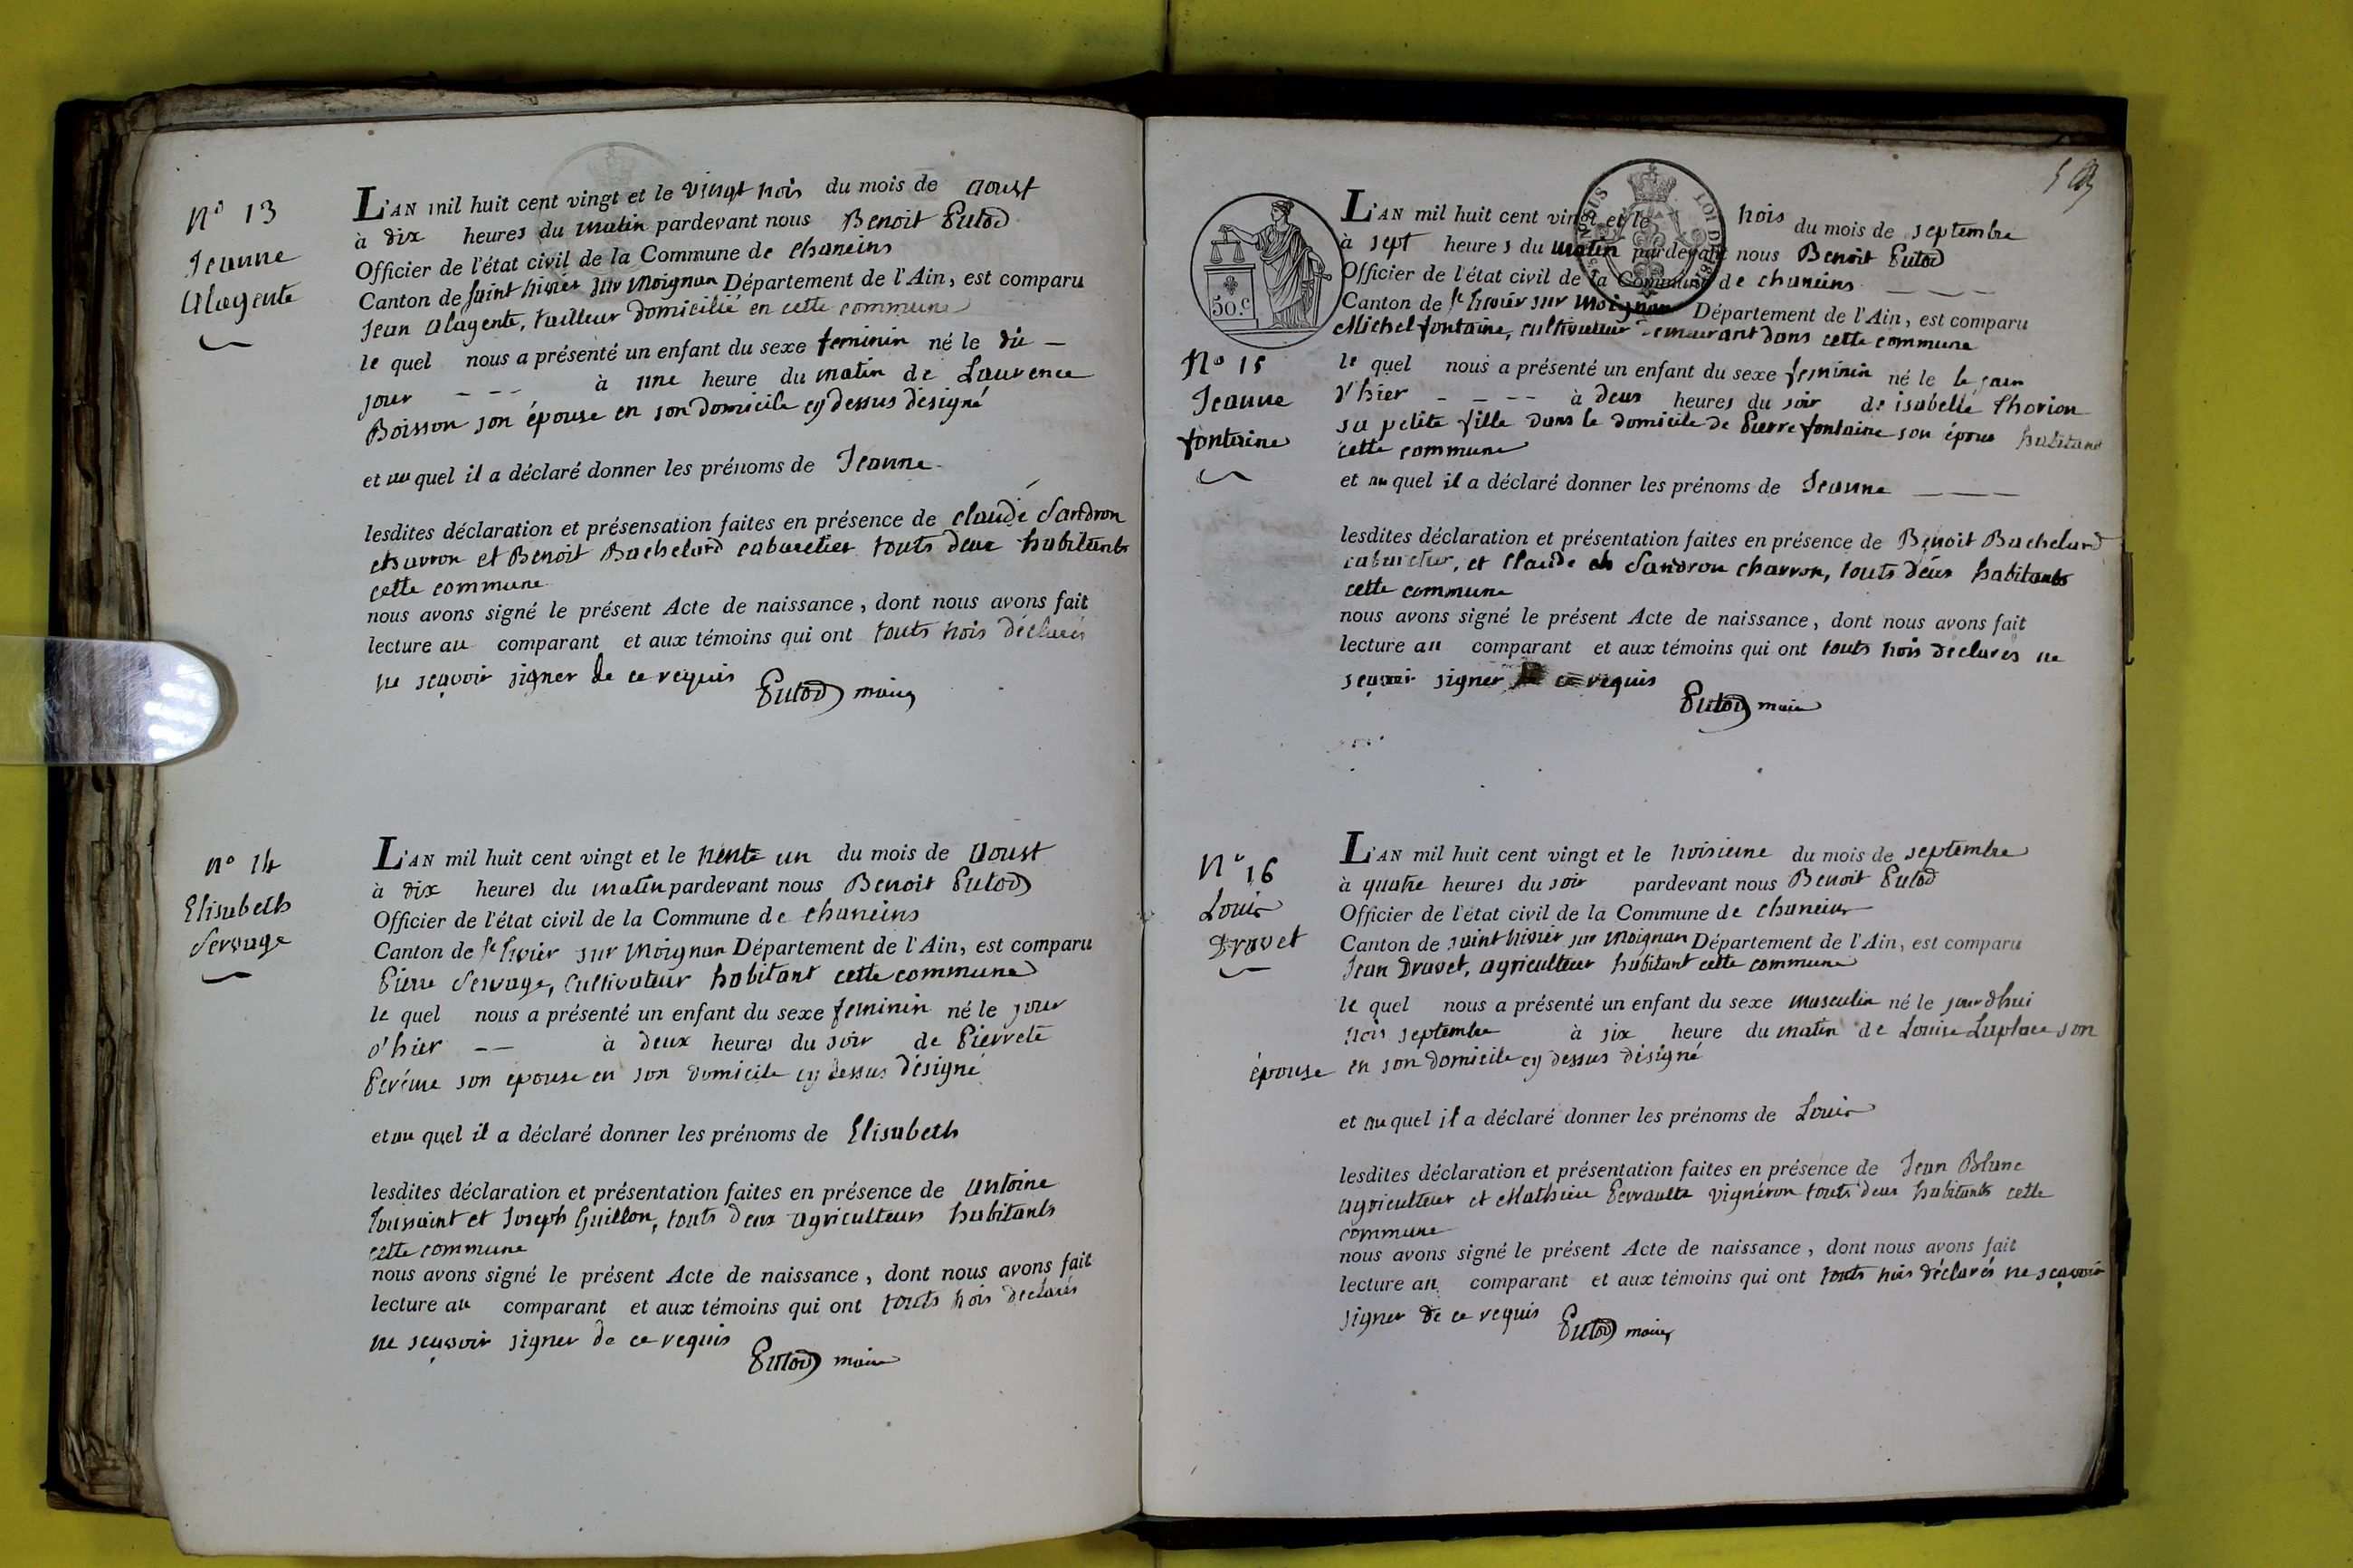 N° 13
Jeanne
Alagente
L'AN mil huit cent vingt et le vingt trois du mois de aoust
à dix heures du matin pardevant nous Benoit Putod
Officier de l'état civil de la Commune de chaneins
Canton de saint trivier sur moignan Département de l'Ain, est comparu
Jean alagente, tailleur domicilié en cette commune
le quel nous a présenté un enfant du sexe feminin né le dit —
jour — — — à une heure du matin de Laurence
Boisson son épouse en son domicile cy dessus désigné
et au quel il a déclaré donner les prénoms de Jeanne
lesdites déclaration et présensation faites en présence de claude Sandron
charron et Benoit Bachelard cabaretier touts deux habitants
cette commune
nous avons signé le présent Acte de naissance, dont nous avons fait
lecture au comparant et aux témoins qui ont touts trois déclarés
ne sçavoir signer de ce requis
Putod maire
n° 14
Elisabeth
Servage
L'AN mil huit cent vingt et le trente un du mois de aoust
à dix heures du matin pardevant nous Benoit Putod
Officier de l'état civil de la Commune de chaneins
Canton de st trivier sur moignan Département de l'Ain, est comparu
Pierre Servage, cultivateur habitant cette commune
le quel nous a présenté un enfant du sexe feminin né le jour
d'hier — — à deux heures du soir de Pierrete
son epouse en son domicile cy dessus désigné
et au quel il a déclaré donner les prénoms de Elisabeth
lesdites déclaration et présentation faites en présence de antoine
toussaint et Joseph Guillon, touts deux agriculteurs habitants
cette commune
nous avons signé le présent Acte de naissance, dont nous avons fait
lecture au comparant et aux témoins qui ont touts trois declarés
ne sçavoir signer de ce requis
Putod maire
50.c
N° 15
Jeanne
fontaine
L'AN mil huit cent vingt et le trois du mois de septembre
à sept heures du matin pardevant nous Benoit Putod
Officier de l'état civil de la Commune de chaneins — — —
Canton de st trivier sur moignan Département de l'Ain, est comparu
Michel fontaine, cultivateur demeurant dans cette commune
le quel nous a présenté un enfant du sexe feminin né le le jour
d'hier — — — — à deux heures du soir de isabelle thorion
sa petite fille dans le domicile de Pierre fontaine son époux habitant
cette commune
et au quel il a déclaré donner les prénoms de Jeanne — — —
lesdites déclaration et présentation faites en présence de Benoit Bachelard
cabaretier, et Claude Sandron charron, touts deux habitants
cette commune
nous avons signé le présent Acte de naissance, dont nous avons fait
lecture au comparant et aux témoins qui ont touts trois déclarés ne
sçavoir signer de ce requis
Putod maire
N° 16
Louis
Dravet
L'AN mil huit cent vingt et le troisieme du mois de septembre
à quatre heures du soir pardevant nous Benoit Putod
Officier de l'état civil de la Commune de chaneins
Canton de saint trivier sur moignan Département de l'Ain, est comparu
Jean Dravet, agriculteur habitant cette commune
le quel nous a présenté un enfant du sexe masculin né le jourdhui
trois septembre à six heure du matin de Louise Laplace son
épouse en son domicile cy dessus désigné
et au quel il a déclaré donner les prénoms de Louis
lesdites déclaration et présentation faites en présence de Jean Blanc
agriculteur et Mathieu Perraulte vignéron touts deux habitants cette
commune
nous avons signé le présent Acte de naissance, dont nous avons fait
lecture au comparant et aux témoins qui ont touts trois déclarés ne sçavoir
signer de ce requis
Putod maire